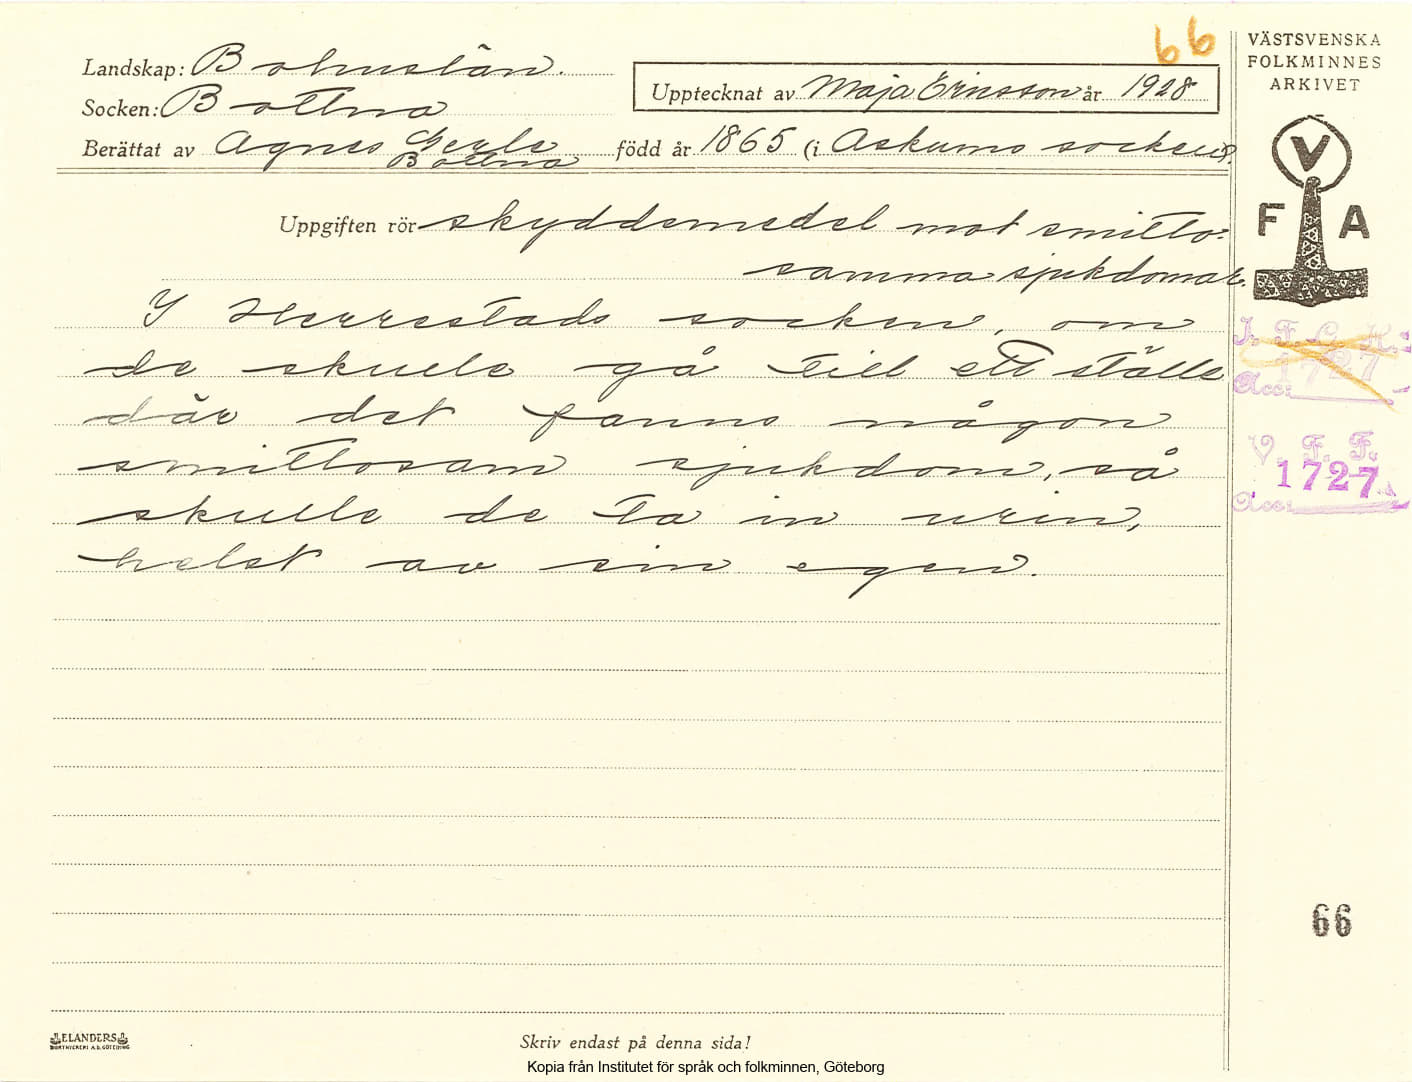 66
VÄSTSVENSKA
FOLKMINNES
ARKIVET
Landskap: Bohuslän.
Socken: Bottna
Upptecknat av Maja Ericsson år 1928
Berättat av Agnes Gerle född år 1865 (i Askums socken).
Bottna
V
F A
Uppgiften rör skyddsmedel mot smitto-
samma sjukdomar.
I Herrestads socken, om
de skulle gå till ett ställe
där det fanns någon
smittosam sjukdom, så
skulle de ta in urin,
helst av sin egen.
1727
Acc:
V. F. F.
1727
Acc:
66
ELANDERS
Skriv endast på denna sida!
Kopia från Institutet för språk och folkminnen, Göteborg